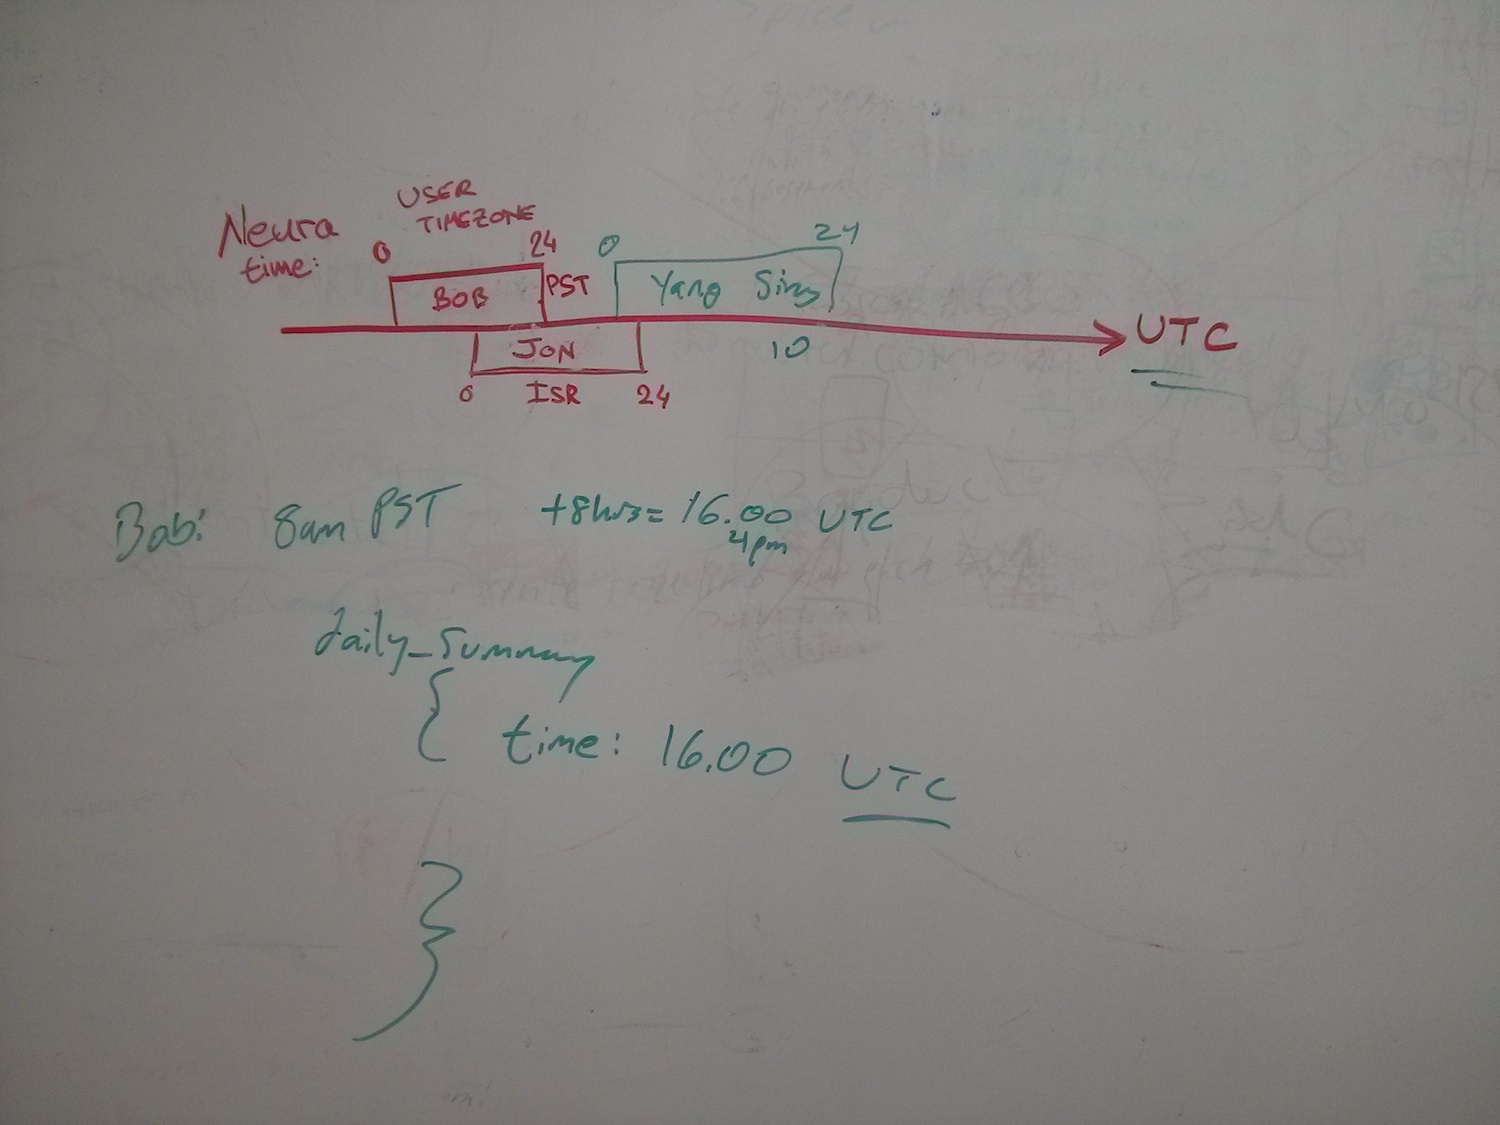 Neura
time:
USER
TIMEZONE
0
24
0
24
BOB
PST
Yang
JON
10
UTC
0
ISR
24
Bob: 8am PST +8hrs= 16.00 UTC
4pm
daily_summary
{
time: 16.00 UTC
}